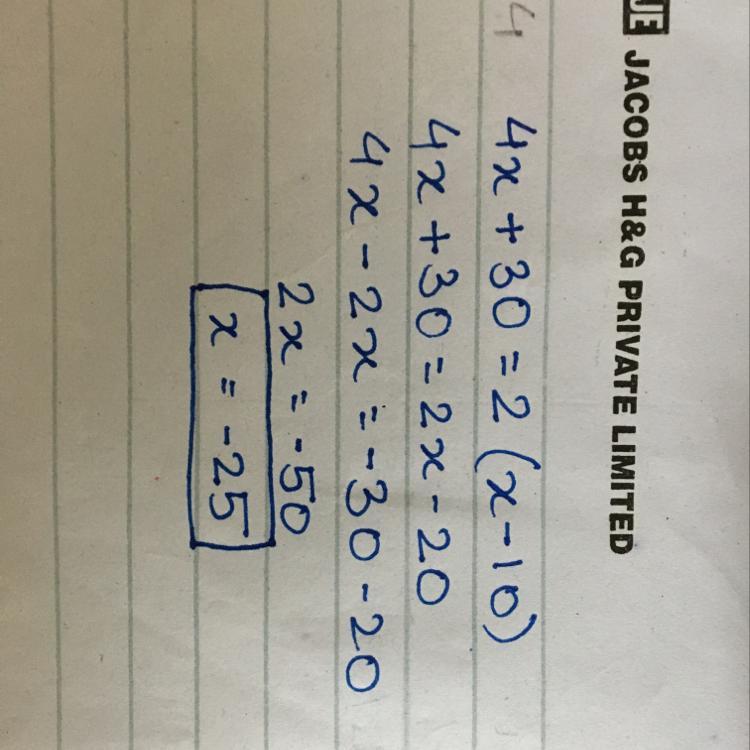 UE JACOBS H&G PRIVATE LIMITED
4
4x + 30 = 2 (x - 10)
4x + 30 = 2x - 20
4x - 2x = -30 - 20
2x = -50
x = -25